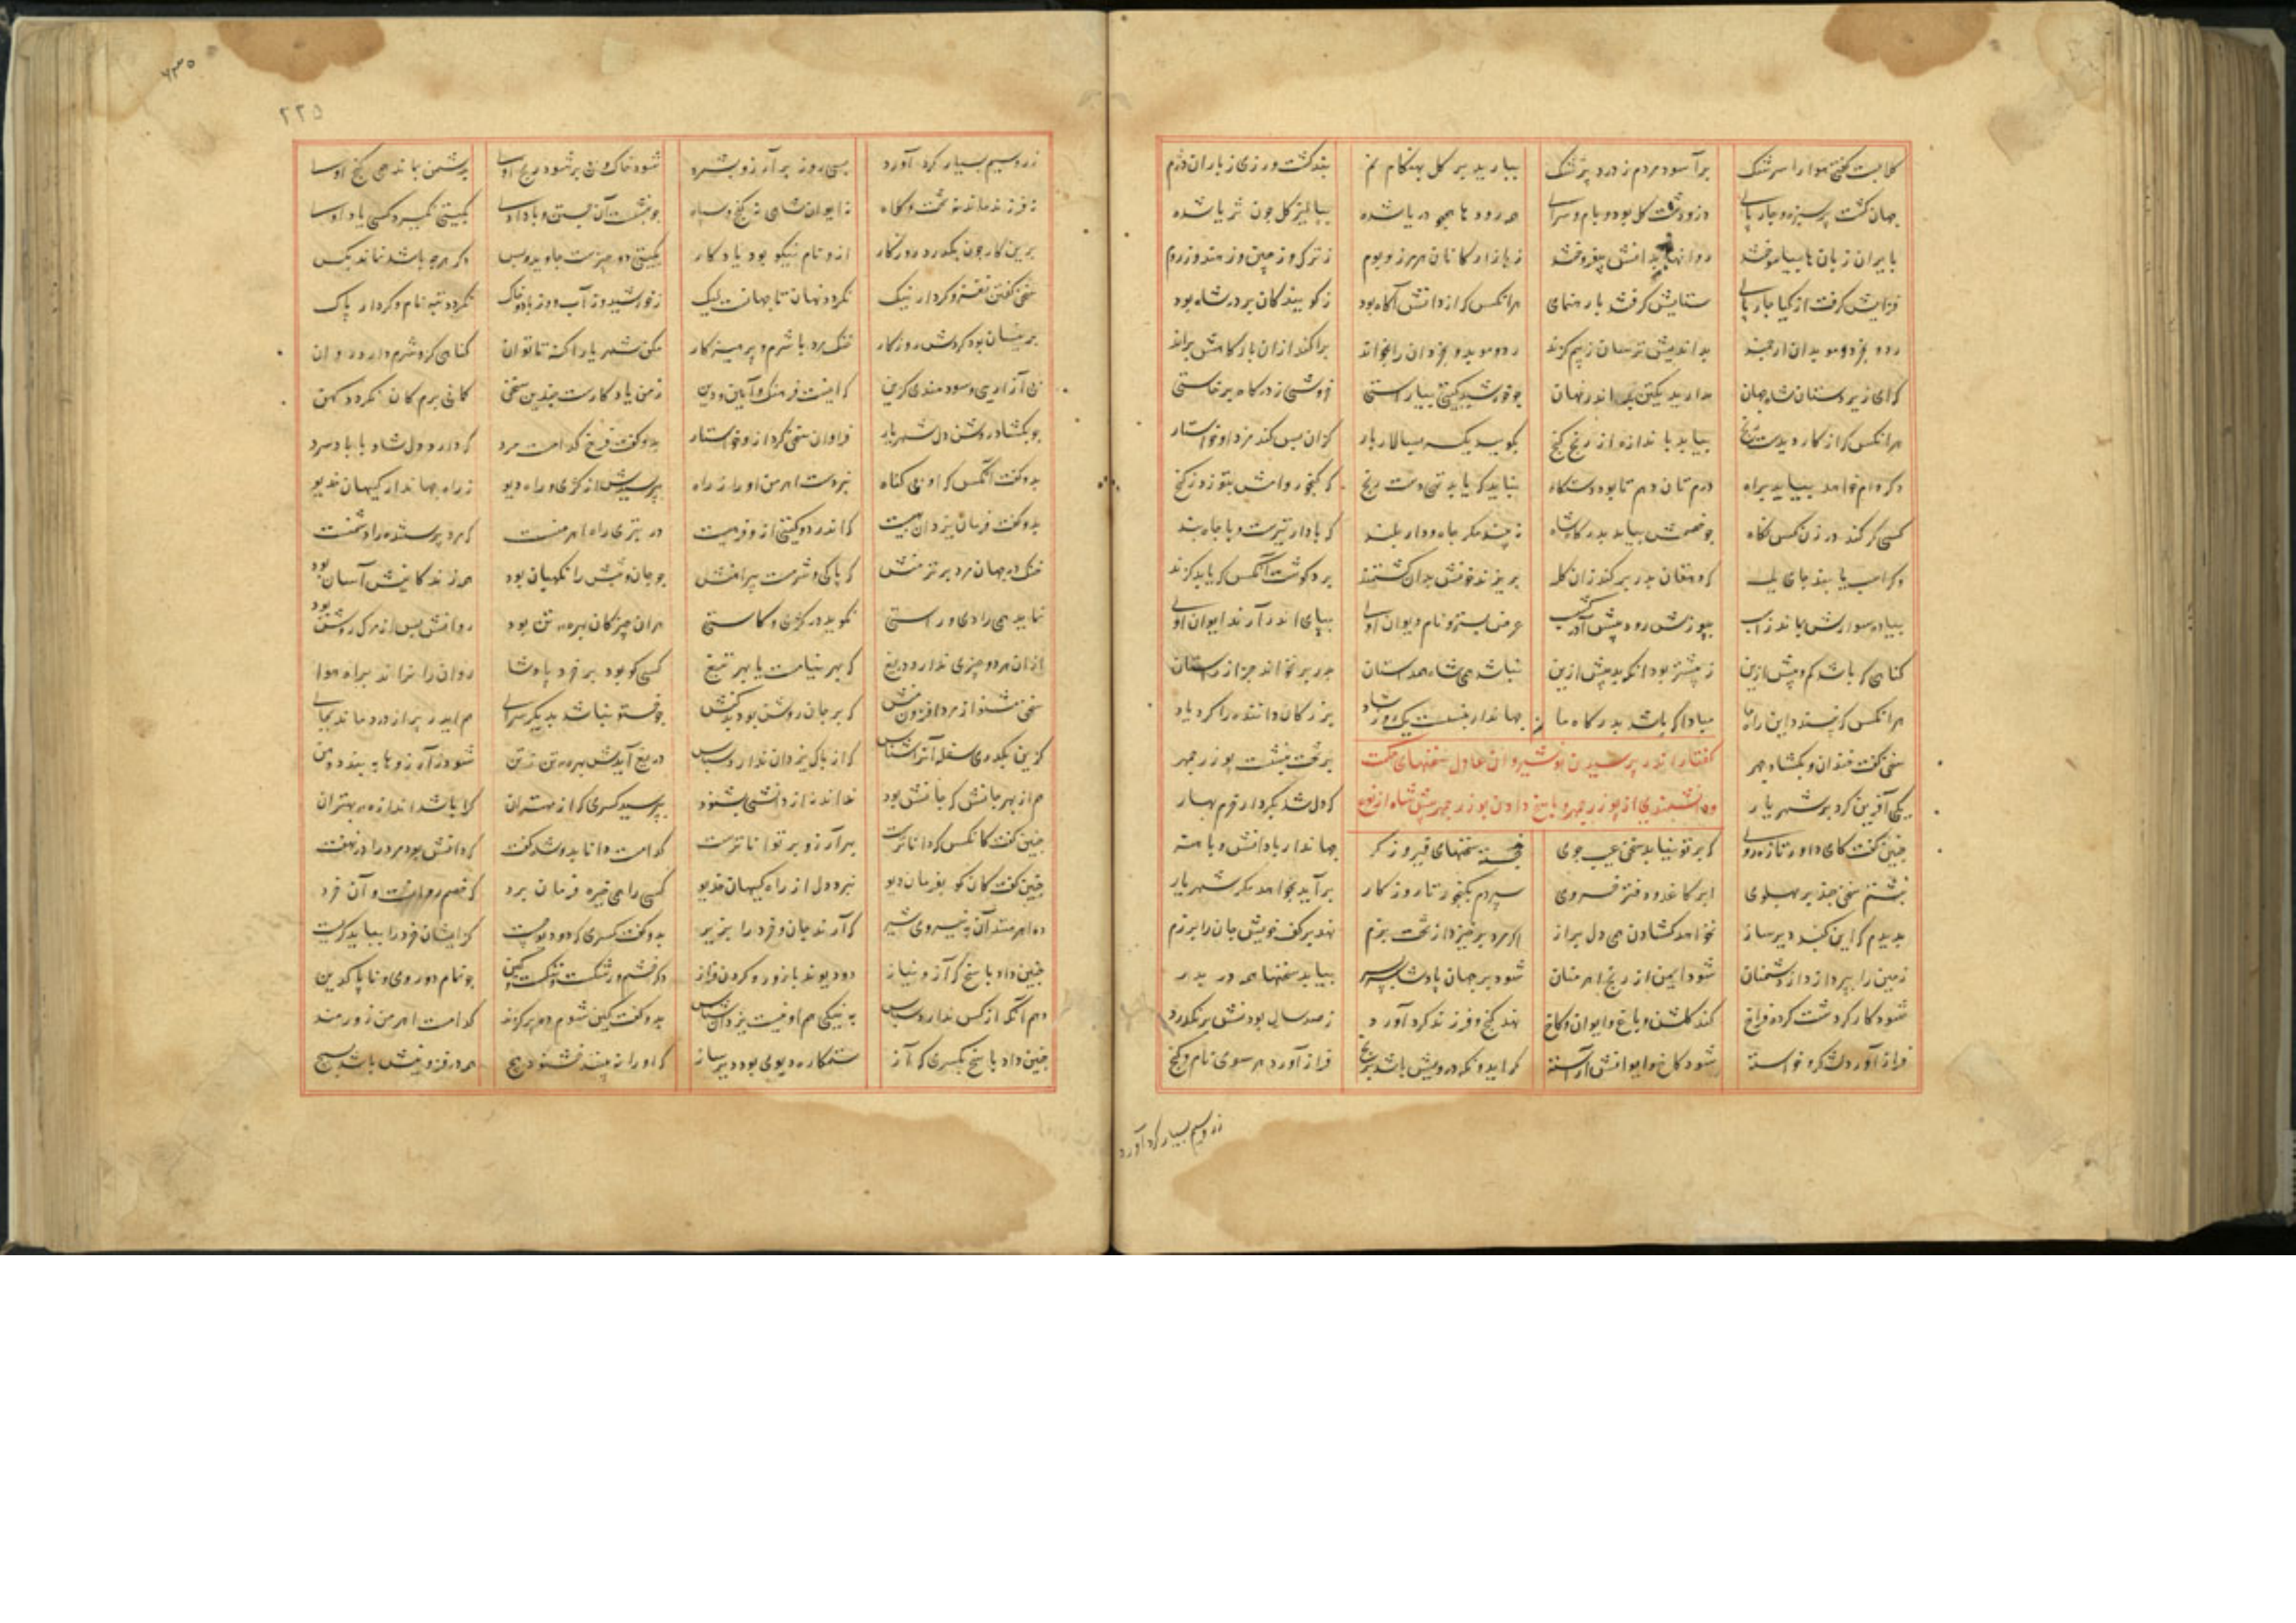 گلابست گفتی هوا را سرشک برآسود مردم ز درد پزشک ببارید بر گل بهنگام نم نبد کشت ورزی ز باران دژم
جهان گشت پر سبزه و چارپای در و دشت گل بود و بام و سرای همه رودها همچو دریا شده ببالیز گل چون ثریا شده
بایران زبان ها بیاموختند روانها بدانش بیفروختند ز بازارگانان هر مرز و بوم ز ترک و ز چین و ز هند و ز روم
ستایش گرفتند بر رهنمای فزایش گرفت از گیا چارپای هرانکس که از دانش آگاه بود ز گویندگان بر در شاه بود
رد و بخرد و موبدان ارجمند بداندیش ترسان ز بیم گزند رد و موبد و بخردان را بخواند
که ای زیردستان شاه جهان مدارید یکتن بد اندر نهان چو خورشید گیتی بیاراستی خروشی ز درگاه برخاستی
هرانکس که از کار دیدست رنج بیابد باندازه از رنج گنج بگوید یکسر بسالار بار کزان پس کند مزد او خواستار
وگر وام خواهد بیاید براه درم تا بود دستگاه نباید که یابد تهی دست رنج که گنجور وامش بتوزد ز گنج
کسی کو کند در زن کس نگاه چو خصمش بیاید بدرگاه شاه نبیند مگر چاه و دار بلند که با دار تیرست و با چاه بند
وگر اسپ یابند جای یله که دهقان بدر بر کند زان گله بریزند خونش بدان کشتمند برد گوشت آنکس که یابد گزند
پیاده سوارش بماند ز اسپ بپوزش رود پیش آذرگشسپ عرض بسترد نام دیوان اوی بپای اندر آرند ایوان اوی
گناهی که باشد کم و بیش ازین ز پستر بود آنکه بد پیش ازین نباشد همی شاه همداستان بدر بر نخواند جز از راستان
هرانکس که نپسندد این راه ما مبادا که باشد بدرگاه ما جهاندار بنشست یک روز شاد بزرگان داننده را کرد یاد
سخن گفت خندان و بگشاد چهر بر تخت بنشست بوزرجمهر
گفتار اندر پرسیدن نوشیروان عادل سخنهای حکمت
یکی آفرین کرد بر شهریار که دل شد بکردار خرم بهار
و دانشمندی از بوزرجمهر و پاسخ دادن بوزرجمهر پیش شاه از نوع
چنین گفت کای داور تازه روی که بر تو نیابد سخن عیب جوی خجسته سخنهای فیروزگر جهاندار با دانش و با
نبشتم سخن چند بر پهلوی ابر کاغذ و دفتر خسروی سپردم بگنجور تا روزگار برآید بخواهد مگر شهریار
بدیدم که این گنبد دیرساز نخواهد گشادن همی دل براز اگر مرد برخیزد از تخت بزم نهد بر کف خویش جان را برزم
زمین را بپردازد از دشمنان شود ایمن از رنج اهرمنان شود بر جهان پادشا بیابد سخنها همه در بدر
شود کار گردشت گردد فراخ کند گلشن و باغ و ایوان و کاخ نهد گنج و فرزند گرد آورد ز صد سالیان بودنش بر خورد
فراز آورد لشکر و خواسته شود کاخ و ایوانش آراسته گر ایدونکه درویش باشد برنج فراز آورد هر سوی نام و گنج
زر و سیم بسیار گرد آورد
۲۲۵
زر و سیم بسیار گرد آورد بسی روز بر آرزو بشمرد شود خاک و بی بر شود رنج اوی بدشمن بماند همی گنج اوی
نه فرزند ماند نه تخت و کلاه نه ایوان شاهی نه گنج و سپاه چو بنشست آن جستن و باد اوی بگیتی نگیرد کسی یاد اوی
برین کار چون بگذرد روزگار ازو نام نیکو بود یادگار بگیتی دو چیزست جاوید و بس دگر هرچه باشد نماند بکس
سخن گفتن نغز و کردار نیک نگردد نهان تا جهانست لیک ز خورشید و ز آب و ز باد و خاک نگردد تبه نام و کردار پاک
برینسان بود گردش روزگار خنک مرد با شرم و پرهیزگار مکن شهریارا گنه تا توان گناهی کزو شرم دارد روان
بی آزاریی و سودمندی گزین که اینست فرهنگ و آیین و دین ز من یادگارست چندین سخن گمانی برم کان نگردد کهن
چو بگشاد روشن دل شهریار فراوان سخن کرد ازو خواستار بدو گفت فرخ کدامست مرد که دارد دل شاد بی باد سرد
بدو گفت آنکس که او بی گناه نبردست اهرمن او را ز راه بپرسیدش از کژی و راه دیو ز راه جهاندار کیهان خدیو
بدو گفت فرمان یزدان بهیست که اندر دو گیتی ازو فرهیست در بتری راه اهرمنست که مرد پرستنده را دشمنست
خنک در جهان مرد برتر منش که پاکی و شرمست پیرامنش چو جان و تنش را نگهبان بود همه زندگانیش آسان بود
بماند همی رادی و راستی نکوبد در کژی و کاستی هران چیز کان بهره تن بود روانش پس از مرگ روشن بود
ازان هر دو چیزی ندارد دریغ که بهر نیامست یا بهر تیغ کسی کو بود بر خرد پادشا روان را نراند براه هوا
سخن مشنو از مرد افزون منش که بر جان روشن بود بدکنش چو خستو نباشد بدیگر سرای هم ایدر پر از درد ماند بجای
کزین بگذری سفله آنرا شناس که از پاک یزدان ندارد سپاس دریغ آیدش بهره تن ز تن شود ز آرزوها ببندد دهن
هم از بهر جانش که جانش بود نداند نه از دانشی بشنود بپرسید کسری که از مهتران کرا باشد اندازه بهتران
چنین گفت کانکس که داناترست بهر آرزو بر تواناترست کدامست دانا بدو شاه گفت که دانش بود مرد را در نهفت
چنین گفت کان کو بفرمان دیو نبرد دل از راه کیهان خدیو کسی را همی خیره فرمان برد که خصم روانست و آن خرد
ده اهرمنند آن به نیروی شیر که آرند جان و خرد را بزیر بدو گفت کسری که ده دیو چیست کزایشان خرد را بباید گریست
چنین داد پاسخ که آز و نیاز دو دیوند با زور و گردن فراز دگر خشم و رشکست و ننگست و کین چو نمام و دوروی و ناپاک دین
دهم آنکه از کس ندارد سپاس به نیکی هم او نیست یزدان شناس بدو گفت کزین شوم ده پر گزند کدامست اهرمن زورمند
چنین داد پاسخ بکسری که آز ستمکاره دیوی بود دیرساز که او را نبینند خشنود هیچ همه در فزونیش باشد بسیچ